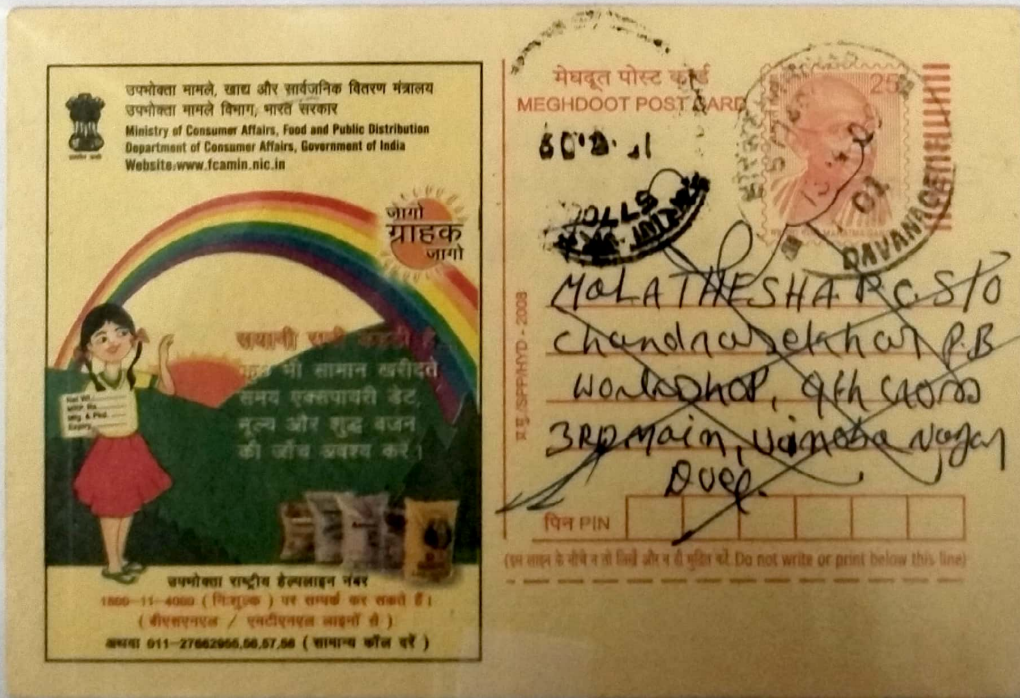 उपभोक्ता मामले, खाद्य और सार्वजनिक वितरण मंत्रालय
उपभोक्ता मामले विभाग, भारत सरकार
Ministry of Consumer Affairs, Food and Public Distribution
Department of Consumer Affairs, Government of India
Website:www.fcamin.nic.in
जागो
ग्राहक
जागो
सयानी रानी कहती है
कुछ भी सामान खरीदते
समय एक्सपायरी डेट,
मूल्य और शुद्ध वजन
की जाँच अवश्य करें।
Net Wt.
MRP. Rs.
Mfg. & Pkd.
Expiry
उपभोक्ता राष्ट्रीय हेल्पलाइन नंबर
1800-11-4000 (निःशुल्क) पर सम्पर्क कर सकते हैं।
(बीएसएनएल / एमटीएनएल लाइनों से)
अथवा 011-27662955,56,57,58 (सामान्य कॉल दरें)
मेघदूत पोस्ट कार्ड
MEGHDOOT POST CARD
25
DAVANAGE
MOLATHESHA P C S/O
Chandrasekhar P.B
Workshop, 9th cross
3RD main, Vinoba Nagar
Dvg.
पिन PIN
(इस लाइन के नीचे न तो लिखें और न ही मुद्रित करें. Do not write or print below this line)
SPP/HYD - 2008